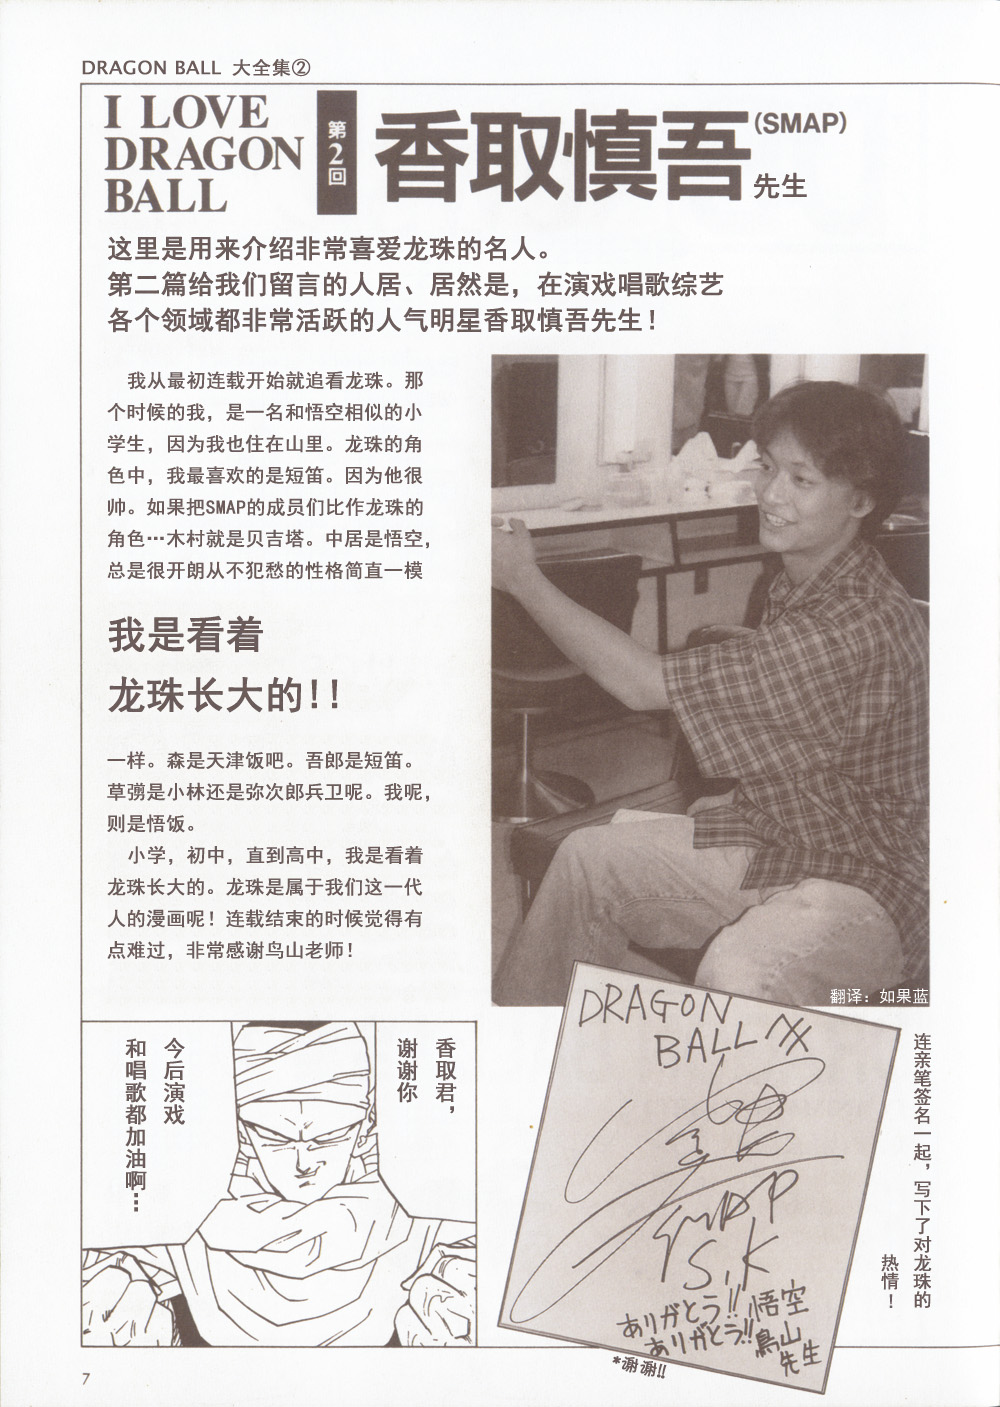 DRAGON BALL 大全集②
I LOVE
DRAGON
BALL
第2回
香取慎吾
(SMAP)
先生
这里是用来介绍非常喜爱龙珠的名人。
第二篇给我们留言的人居、居然是，在演戏唱歌综艺
各个领域都非常活跃的人气明星香取慎吾先生！
我从最初连载开始就追看龙珠。那
个时候的我，是一名和悟空相似的小
学生，因为我也住在山里。龙珠的角
色中，我最喜欢的是短笛。因为他很
帅。如果把SMAP的成员们比作龙珠的
角色…木村就是贝吉塔。中居是悟空，
总是很开朗从不犯愁的性格简直一模
我是看着
龙珠长大的!!
一样。森是天津饭吧。吾郎是短笛。
草彅是小林还是弥次郎兵卫呢。我呢，
则是悟饭。
小学，初中，直到高中，我是看着
龙珠长大的。龙珠是属于我们这一代
人的漫画呢！连载结束的时候觉得有
点难过，非常感谢鸟山老师！
翻译：如果蓝
香取君，
谢谢你
今后演戏
和唱歌都加油啊…
DRAGON
BALL
SMAP
S.K
ありがとう!!悟空
ありがとう!!鳥山
先生
*谢谢!!
连亲笔签名一起，写下了对龙珠的
热情！
7